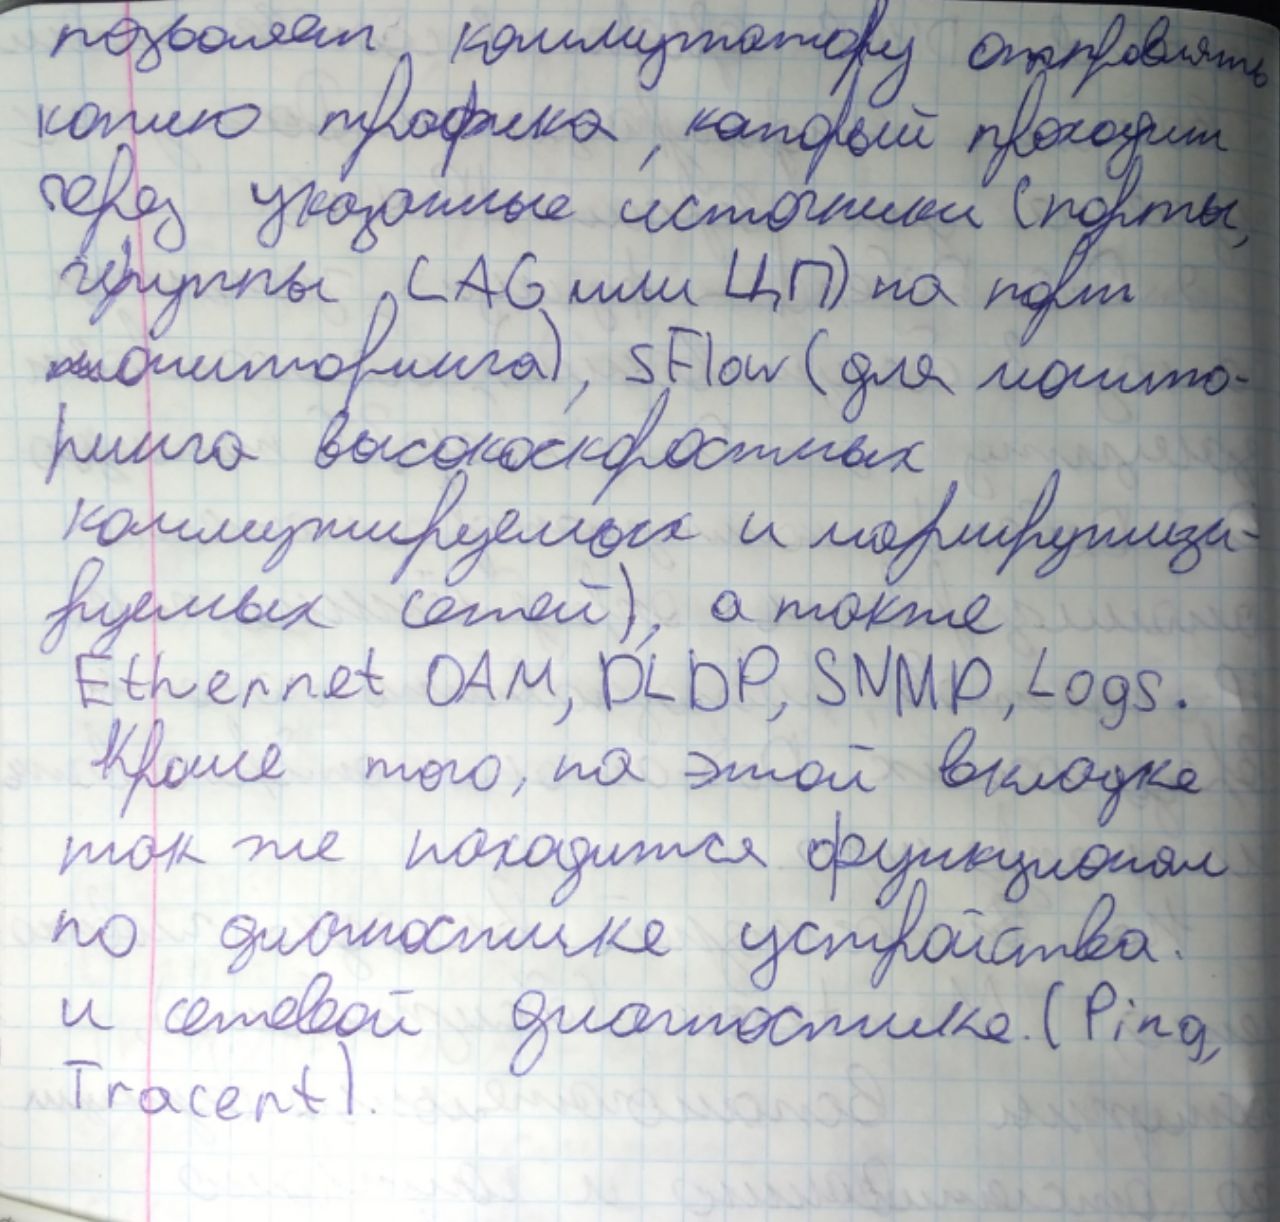 позволяет коммутатору отправлять
копию трафика, который проходит
через указанные источники (порты,
группы LAG или ЦП) на порт
мониторинга), sFlow (для монито-
ринга высокоскоростных
коммутируемых и маршрутизи-
руемых сетей), а также
Ethernet OAM, DLDP, SNMP, Logs.
Кроме того, на этой вкладке
так же находится функционал
по диагностике устройства.
и сетевой диагностике. (Ping,
Tracert).